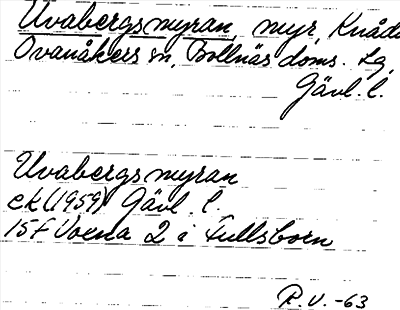 Uvabergsmyran, myr, Knåda
Ovanåkers sn, Bollnäs doms. Lg,
Gävl. l.
Uvabergsmyran
ek (1959) Gävl. l.
15F Voxna 2 i Fullsborn
R.V. -63